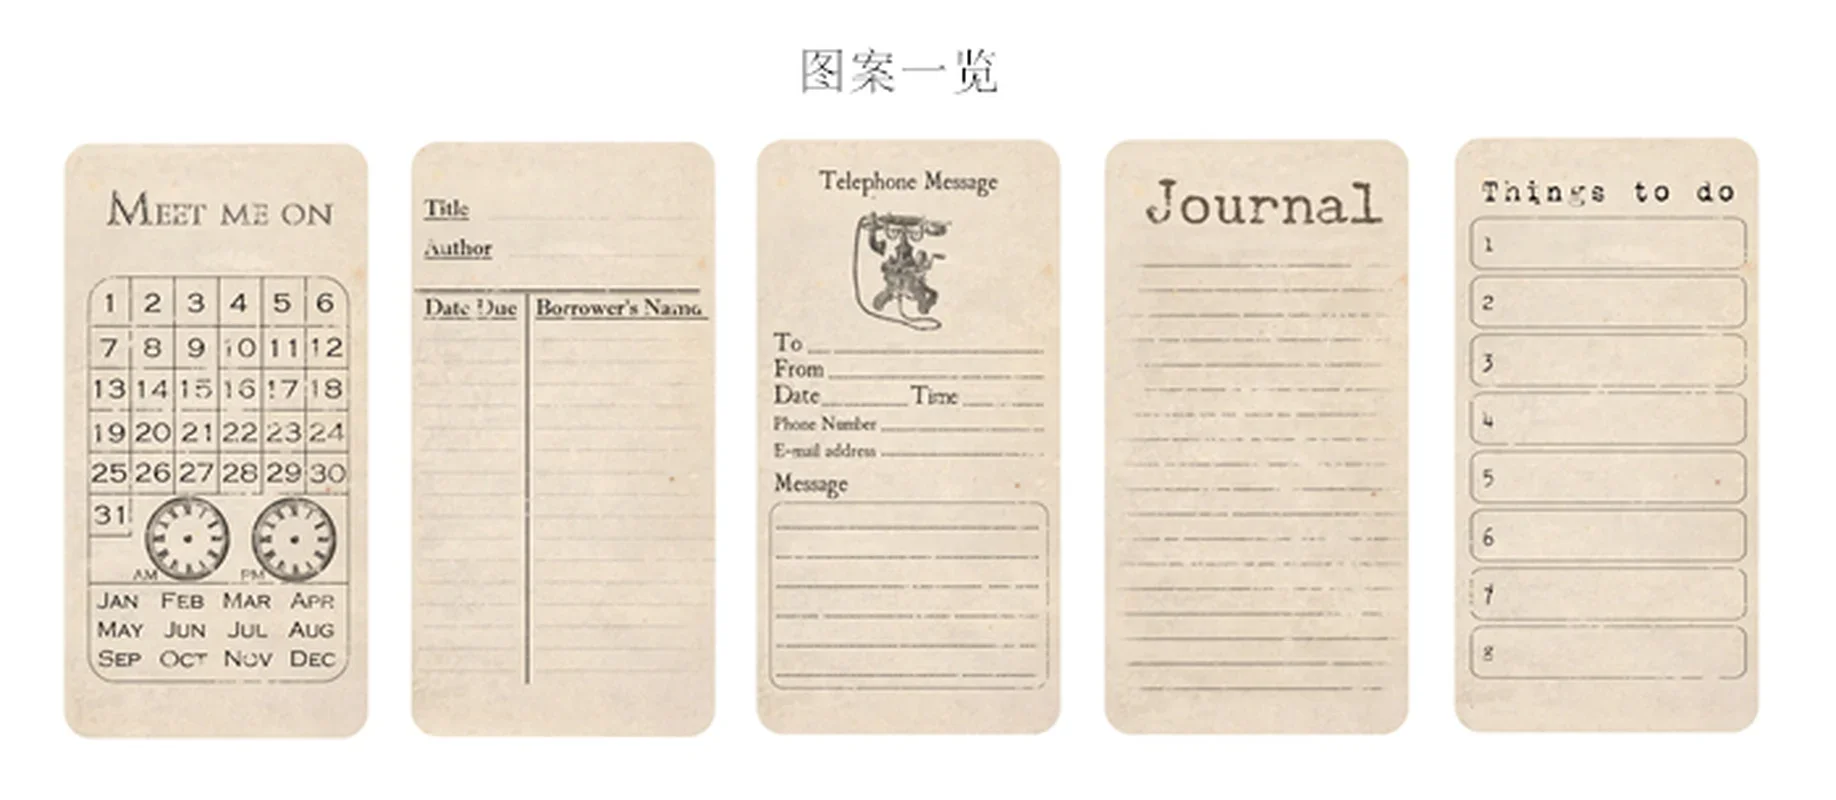 图案一览
MEET ME ON
1 2 3 4 5 6
7 8 9 10 11 12
13 14 15 16 17 18
19 20 21 22 23 24
25 26 27 28 29 30
31
AM PM
JAN FEB MAR APR
MAY JUN JUL AUG
SEP OCT NOV DEC
Title
Author
Date Due Borrower's Name
Telephone Message
To
From
Date Time
Phone Number
E-mail address
Message
Journal
Things to do
1
2
3
4
5
6
7
8